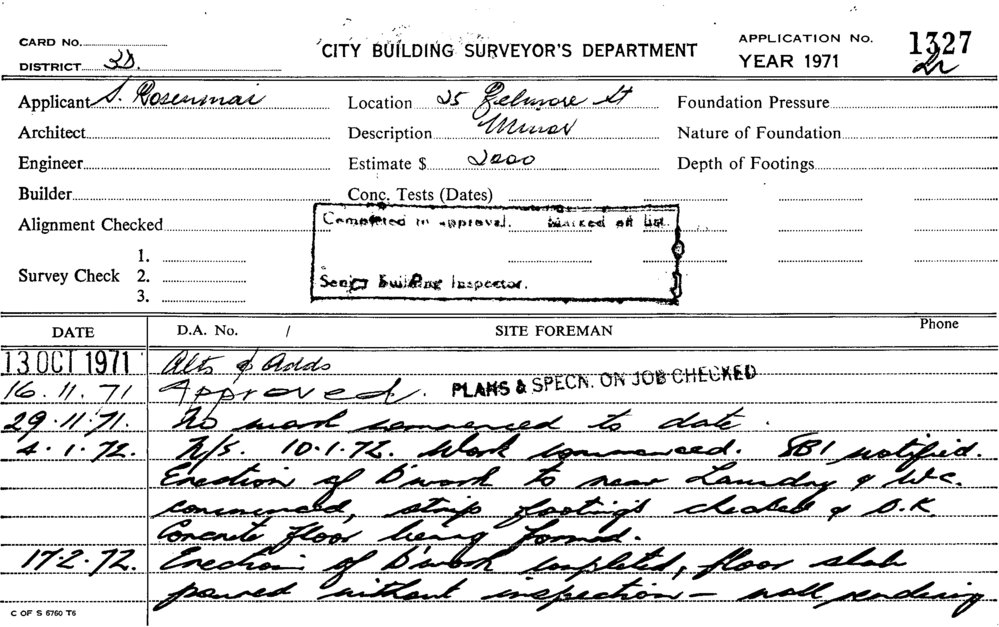 CARD No.
DISTRICT 3D.
CITY BUILDING SURVEYOR'S DEPARTMENT
APPLICATION No. 1327
YEAR 1971
Applicant S. Rosenmai
Location 25 St
Foundation Pressure
Architect
Description Minor
Nature of Foundation
Engineer
Estimate $ 2000
Depth of Footings
Builder
Conc. Tests (Dates)
Alignment Checked
Completed to approval. Marked off list.
Survey Check 1.
2.
3.
Senior Building Inspector.
DATE D.A. No. / SITE FOREMAN Phone
13 OCT 1971 Alts & Adds
16.11.71 Approved. PLANS & SPECN. ON JOB CHECKED
29.11.71. No work commenced to date.
4.1.72. N/S. 10.1.72. Work commenced. SBI notified.
Erection of B'work to new Laundry & W.C.
commenced, strip footings checked & O.K.
Concrete floor being formed.
17.2.72. Erection of B'work completed, floor slab
poured without inspection - wall rendering
C OF S 6760 T6